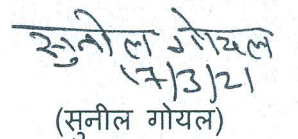 सुनील गोयल
17/3/21
(सुनील गोयल)